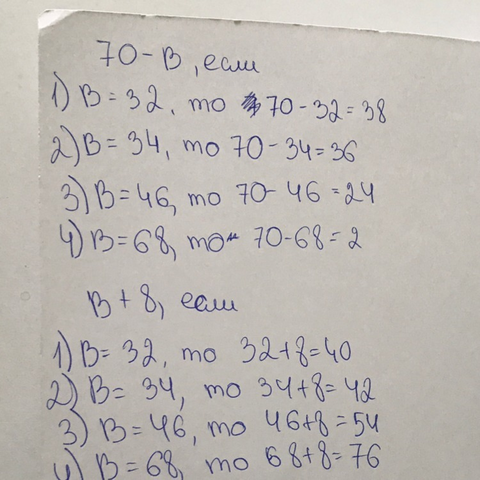 70-В, если
1) В=32, то 70-32=38
2) В=34, то 70-34=36
3) В=46, то 70-46=24
4) В=68, то 70-68=2
В+8, если
1) В=32, то 32+8=40
2) В=34, то 34+8=42
3) В=46, то 46+8=54
4) В=68, то 68+8=76